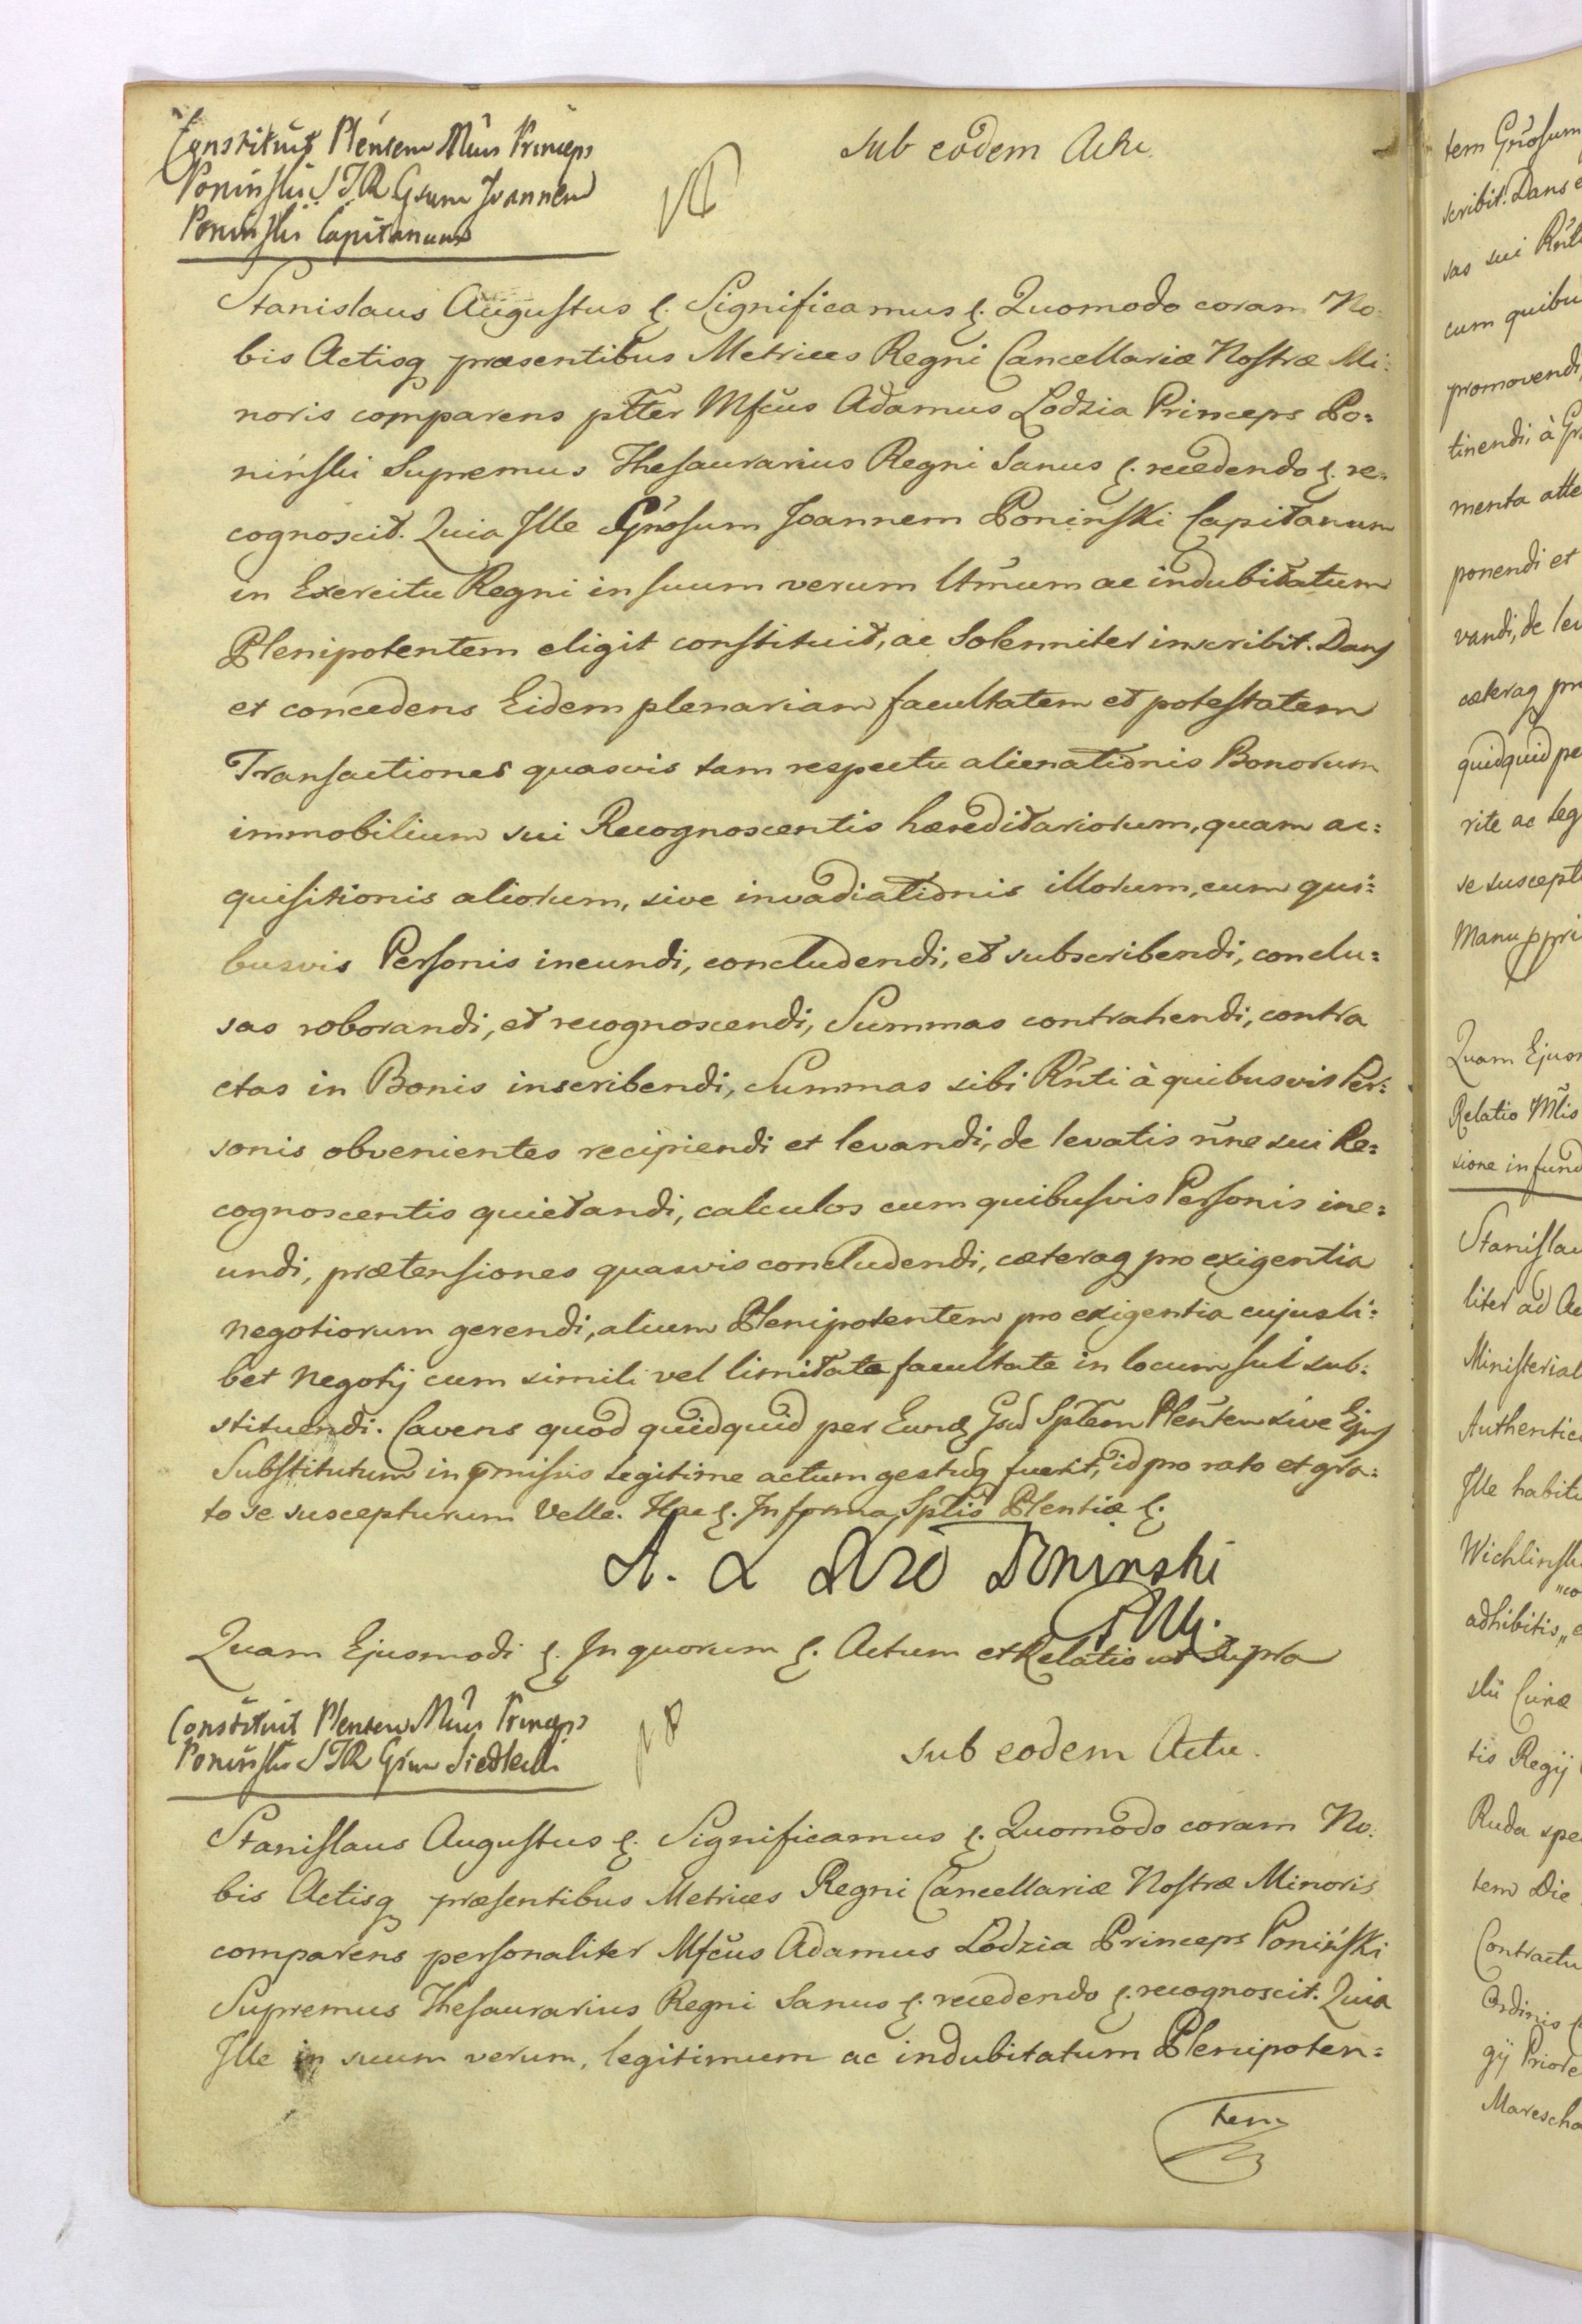 Constituit Pleñtem Mĩus Princeps
Poninski STR Gsum Joannem
Poniński Capitanum
sub eodem Actu.
Stanislaus Augustus &. Significamus &. Quomodo coram No:
bis Actisq præsentibus Metrices Regni Cancellariæ Nostræ Mi:
noris comparens ptter Mfcus Adamus Lodzia Princeps Po:
niński Supremus Thesaurarius Regni Sanus &. recedendo &. re:
cognoscit. Quia Ille Gñosum Joannem Poniński Capitanum
in Exercitu Regni in suum verum ltm̃um ac indubitatum
Plenipotentem eligit constituit, ac Solenniter inscribit. Dans
et concedens Eidem plenariam facultatem et potestatem
Transactiones quasvis tam respectu alienationis Bonorum
immobilium sui Recognoscentis hæreditariorum, quam ac:
quisitionis aliorum, sive invadiationis illorum, cum qui:
busvis Personis ineundi, concludendi, et subscribendi, conclu:
sas roborandi, et recognoscendi, Summas contrahendi, contra
ctas in Bonis inscribendi, Summas sibi Rñti à quibusvis Per:
sonis obvenientes recipiendi et levandi, de levatis ñne sui Re:
cognoscentis quietandi, calculos cum quibusvis Personis ine:
undi, prætensiones quasvis concludendi, cæteraq pro exigentia
negotiorum gerendi, alium Plenipotentem pro exigentia cujusli:
bet negotij cum simili vel limitata facultate in locum sui sub:
stituendi. Cavens quod quidquid per Eund Gsd Sptem Pleñtem sive Ejus
Substitutum in pmissis legitime actum gestuq fuerit, id pro rato et gra:
to se suscepturum Velle. Hac &. In forma Sptis Plentiæ &.
A. Poninski
Quam Ejusmodi &. In quorum &. Actum et Relatio ut Supra
Constituit Plentem Mĩus Princeps
Poninski STR Gsum Siedlecki
sub eodem Actu.
Stanislaus Augustus &. Significamus &. Quomodo coram No:
bis Actisq præsentibus Metrices Regni Cancellariæ Nostræ Minoris
comparens personaliter Mfcus Adamus Lodzia Princeps Poniński
Supremus Thesaurarius Regni Sanus &. recedendo &. recognoscit. Quia
Ille in suum verum, legitimum ac indubitatum Plenipoten:
tem
tem Gñosum
scribit. Dans e
sas sui Rñti
cum quibu
promovendi,
tinendi, à Gr
menta atte
ponendi et
vandi, de lev
cæteraq pr
quidquid pe
rite ac leg
se suscept
Manu ppri
Quam Ejus
Relatio Mlis
sione in fund
Stanislau
liter ad Ac
Ministerial
Authentic
Ille habit
Wichlinsk
"co
adhibitis, e
slii Curæ
tis Regij
Ruda spe
tem Die
Contractu
Ordinis
gij Priore
Marescha